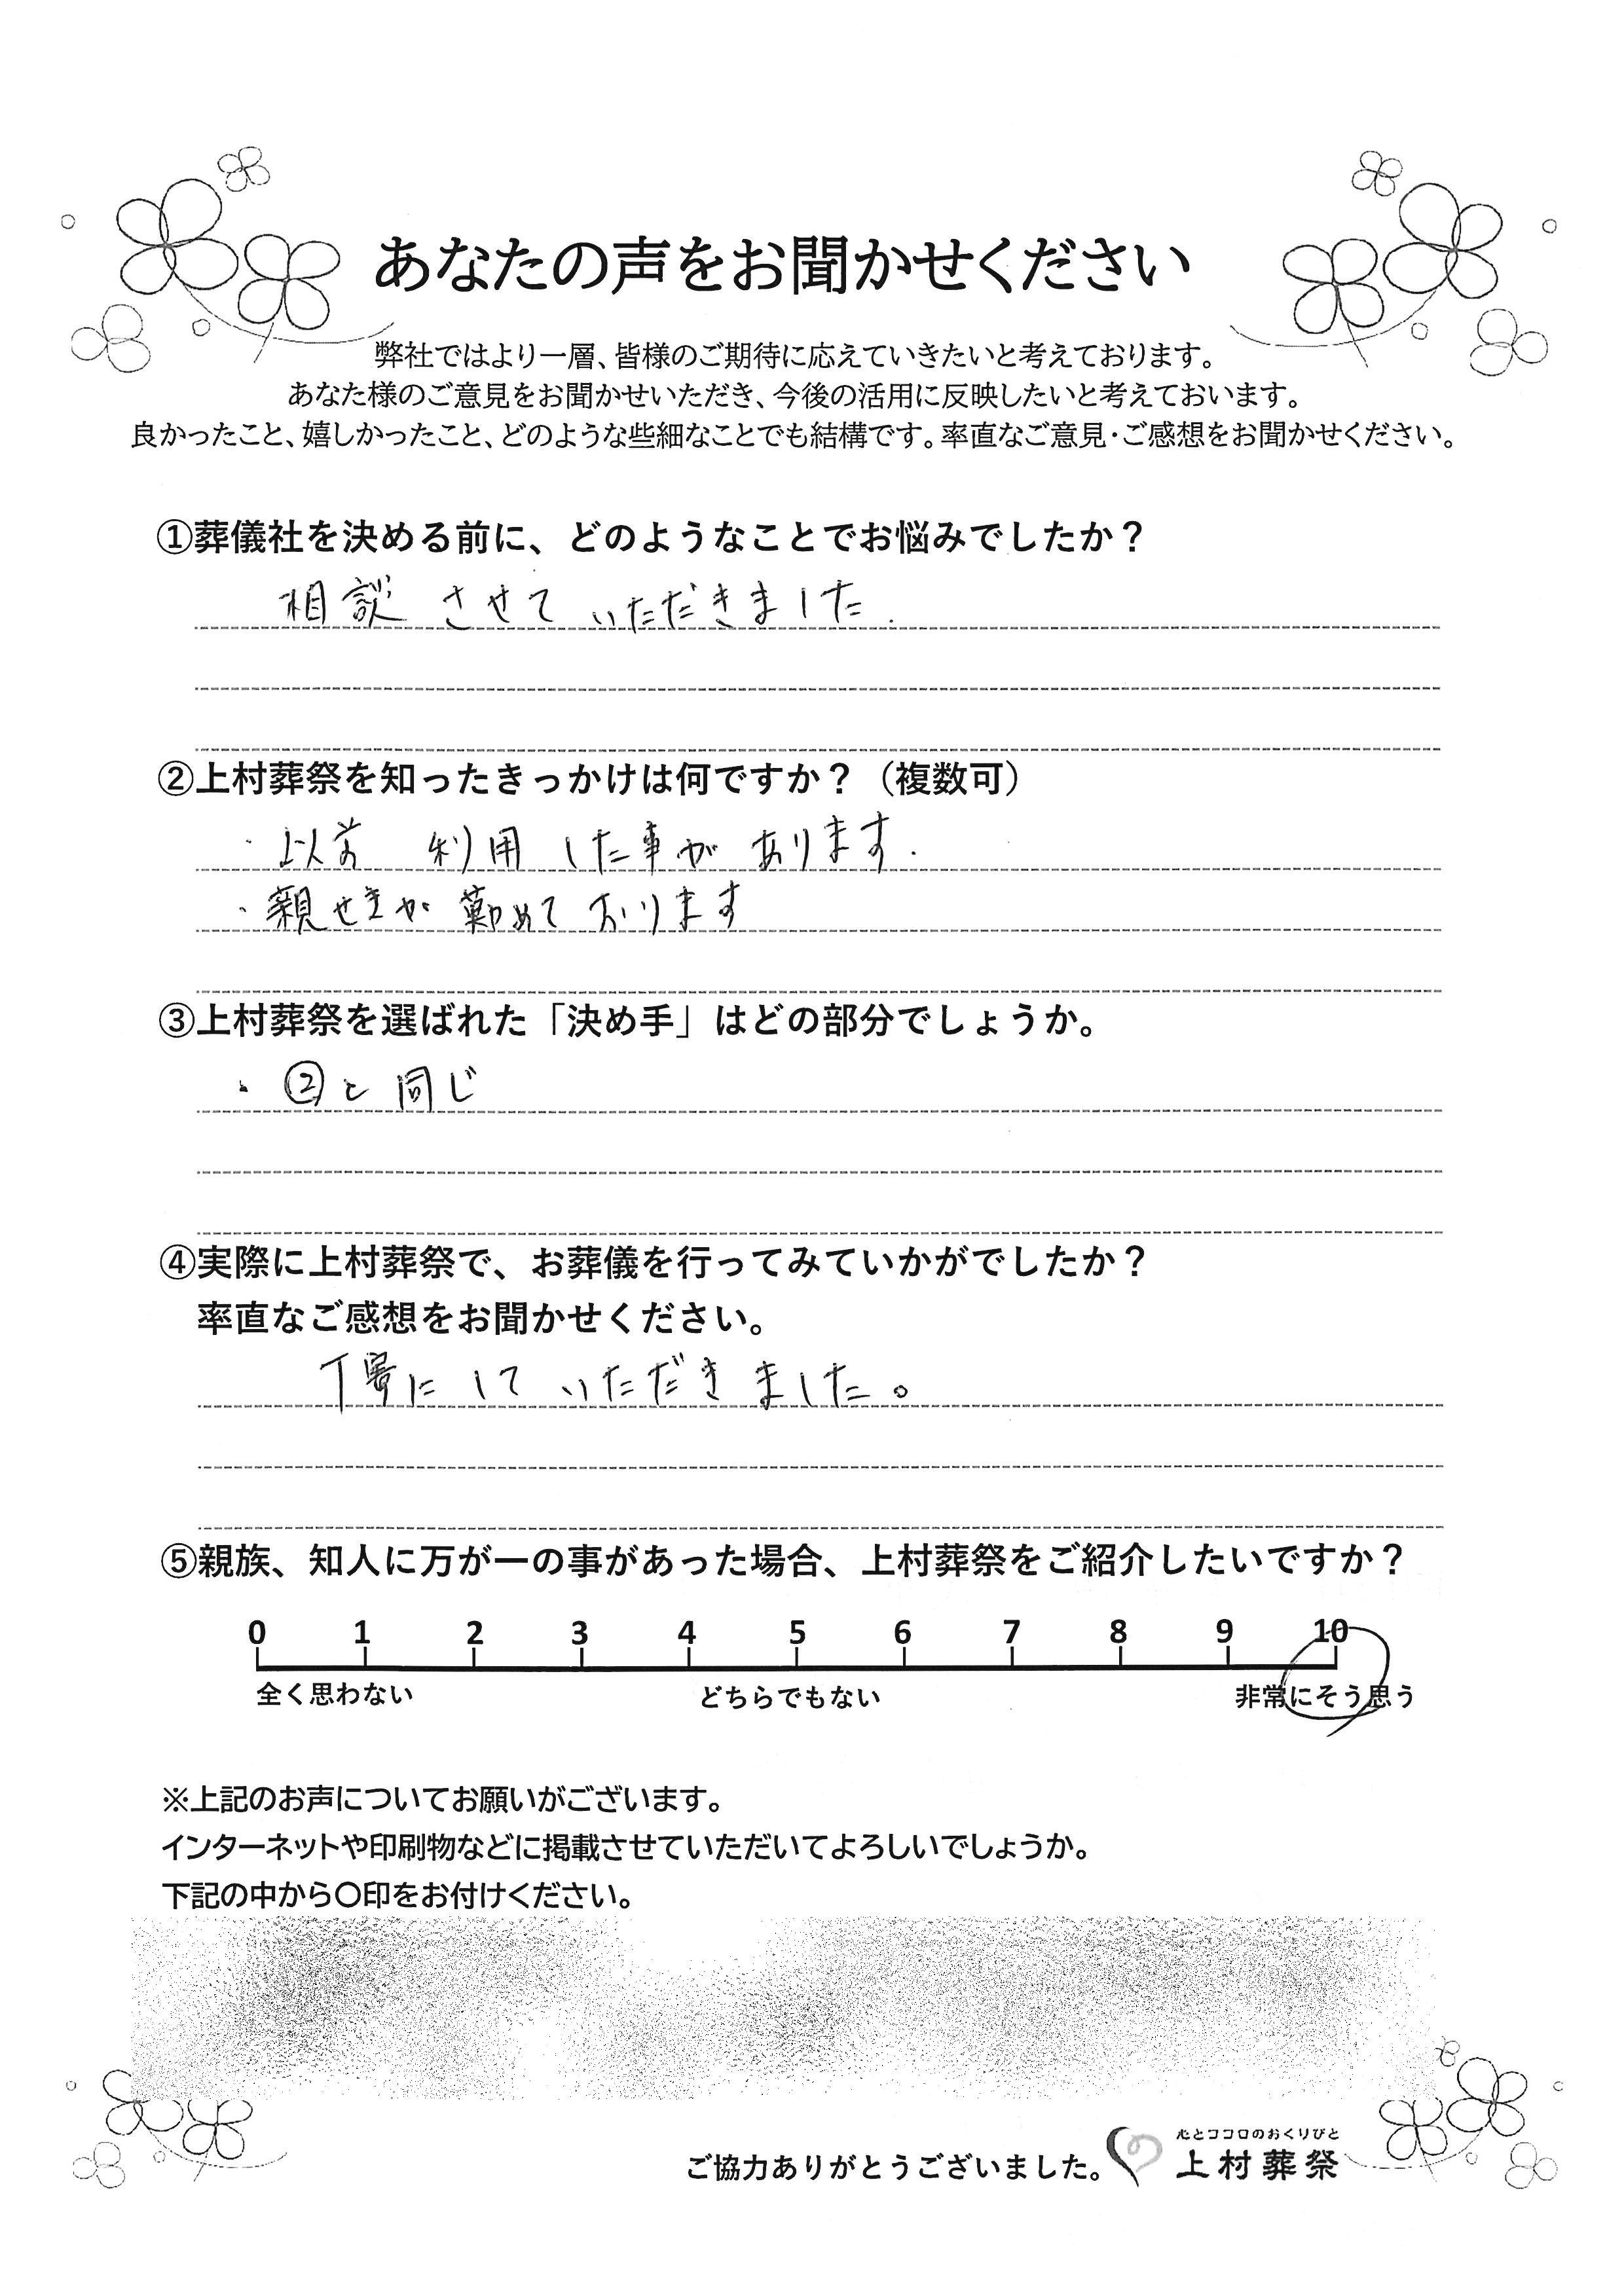 あなたの声をお聞かせください
弊社ではより一層、皆様のご期待に応えていきたいと考えております。
あなた様のご意見をお聞かせいただき、今後の活用に反映したいと考えておいます。
良かったこと、嬉しかったこと、どのような些細なことでも結構です。率直なご意見・ご感想をお聞かせください。
①葬儀社を決める前に、どのようなことでお悩みでしたか？
相談させていただきました.
②上村葬祭を知ったきっかけは何ですか？（複数可）
・以前 利用した事があります.
・親せきが勤めております
③上村葬祭を選ばれた「決め手」はどの部分でしょうか。
・②と同じ
④実際に上村葬祭で、お葬儀を行ってみていかがでしたか？
率直なご感想をお聞かせください。
丁寧にしていただきました。
⑤親族、知人に万が一の事があった場合、上村葬祭をご紹介したいですか？
0 1 2 3 4 5 6 7 8 9 10
全く思わない どちらでもない 非常にそう思う
※上記のお声についてお願いがございます。
インターネットや印刷物などに掲載させていただいてよろしいでしょうか。
下記の中から〇印をお付けください。
心とココロのおくりびと
ご協力ありがとうございました。 上村葬祭